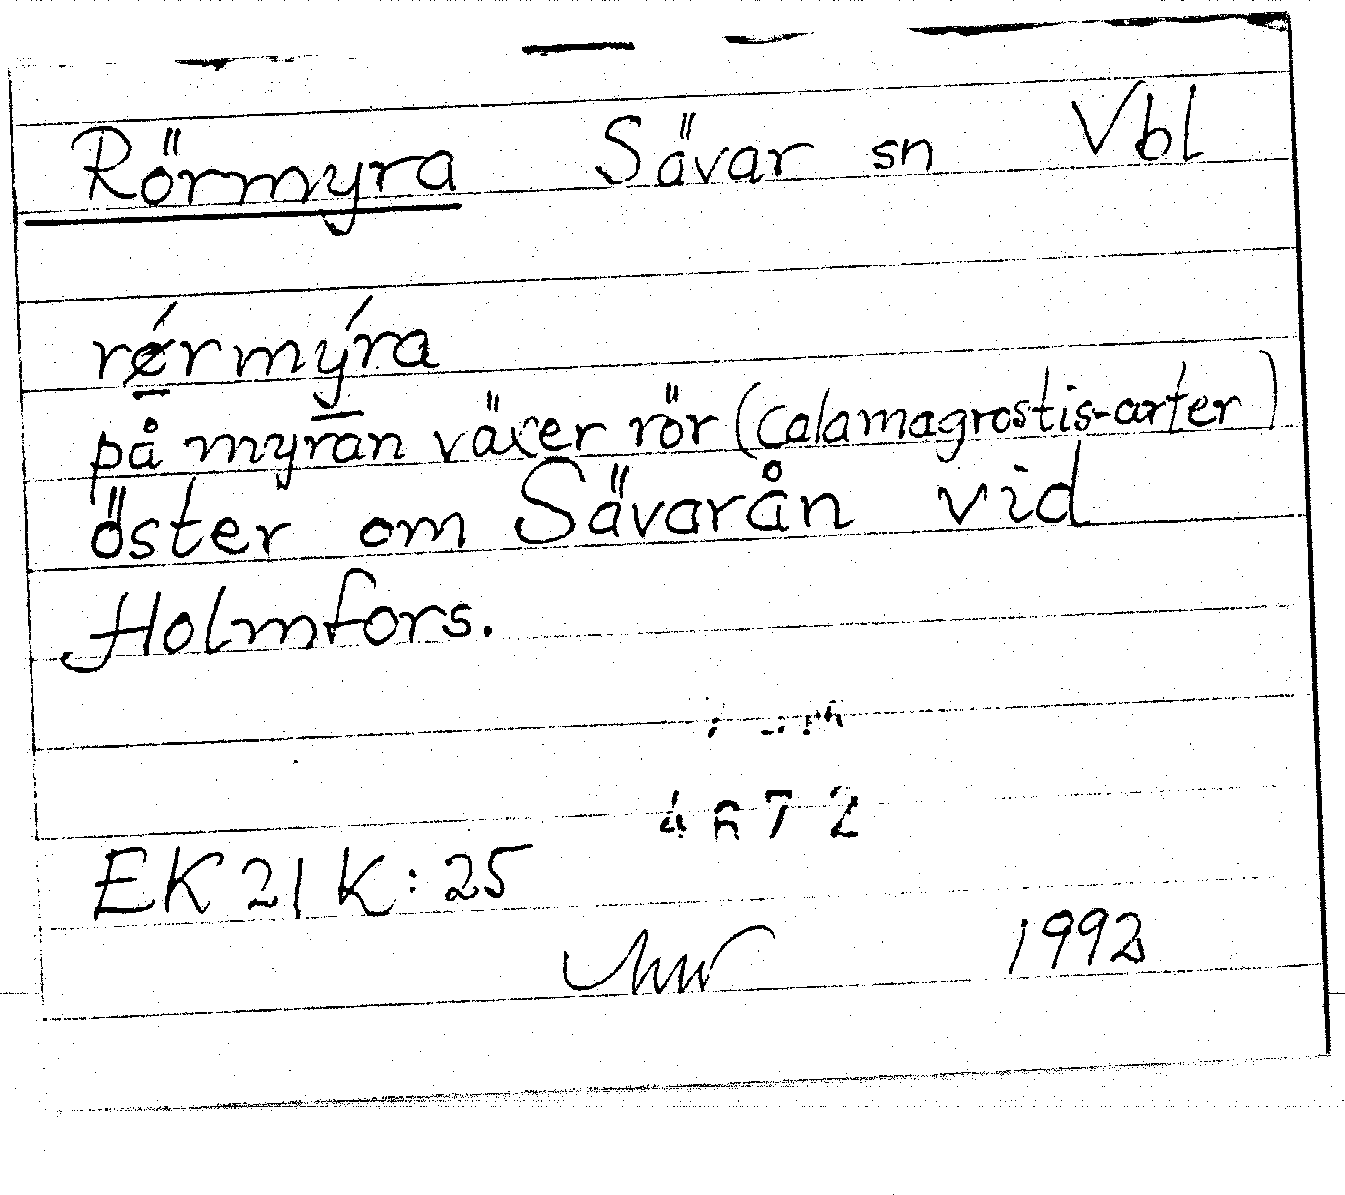 Rörmyra Sävar sn Vbl
rǿrmýra
på myran växer rör (Calamagrostis-arter)
öster om Sävarån vid
Holmfors.
4672
EK 21 K: 25
1992